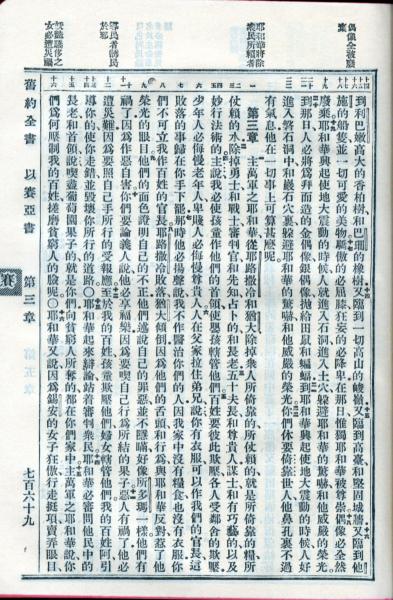 偶像全被廢
棄
耶和華將除
衆民所賴者
於邪
女必遭災禍
到利巴嫩高大的香柏樹和巴珊的橡樹又臨到一切高山的峻嶺又臨到高臺和堅固城牆又臨到他
施的船隻並一切可愛的美物驕傲的必屈膝狂妄的必降卑在那日惟獨耶和華被尊崇偶像必全然
廢棄耶和華興起使地大震動的時候人就進入石洞進入土穴躲避耶和華的驚嚇和他威嚴的榮光
到那日人必將爲拜而造的金偶像銀偶像拋給田鼠和蝙蝠到耶和華興起使地大震動的時候人好
進入磐石洞中和巖石穴裏躲避耶和華的驚嚇和他威嚴的榮光你們休要倚靠世人他鼻孔裏不過
有氣息他在一切事上可算甚麽呢
第三章 主萬軍之耶和華從耶路撒冷和猶大除掉衆人所倚靠的所仗賴的就是所倚靠的糧所
仗賴的水除掉勇士和戰士審判官和先知占卜的和長老五十夫長和尊貴人謀士和有巧藝的以及
妙行法術的主說我必使孩童作他們的首領使嬰孩轄管他們百姓要彼此欺壓各人受鄰舍的欺壓
少年人必侮慢老年人卑賤人必侮慢尊貴人人在父家拉住弟兄說你有衣服可以作我們的官長這
敗落的事歸在你手下罷那時他必揚聲說我不作醫治你們的人因我家中沒有糧食也沒有衣服你
們不可立我作百姓的官長耶路撒冷敗落猶大傾倒因爲他們的舌頭和行爲與耶和華反對惹了他
榮光的眼目他們的面色證明自己的不正他們述說自己的罪惡並不隱瞞好像所多瑪一樣他們有
禍了因爲作惡自害你們要論義人說他必享福樂因爲要喫自己行爲所結的果子惡人有禍了他必
遭災難因爲要照自己手所行的受報應至於我的百姓孩童欺壓他們婦女轄管他們我的百姓阿引
導你的使你走錯並毀壞你所行的道路〇耶和華起來辯論站着審判衆民耶和華必審問他民中的
長老和首領說喫盡葡萄園果子的就是你們向貧窮人所奪的都在你們家中主萬軍之耶和華說你
們爲何壓制我的百姓搓磨貧窮人的臉呢〇耶和華又說因爲錫安的女子狂傲行走挺項賣弄眼目
舊約全書 以賽亞書 第三章 七百六十九
賽